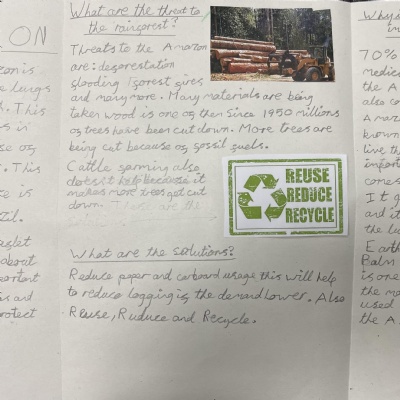 ON
zonis
lungs
. This
s in
se of
. This
e is
zil.
aflet
about
portant
is and
rotect
What are the threat to
the rainforest?
Threats to the Amazon
are: deforestation
flooding Forest fires
and many more. Many materials are being
taken wood is one of then Since 1950 millions
of trees have been cut down. More trees are
being cut because of fossil fuels.
Cattle farming also
doesnt help because it
makes more trees get cut
down.
REUSE
REDUCE
RECYCLE
What are the solutions?
Reduce paper and carboard usage this will help
to reduce logging if the demand lower. Also
Reuse, Ruduce and Recycle.
Why
in
70%
medic
the A
also co
Amaz
known
live th
import
comes
It g
and it
the lu
Earth
Balm
is one
the mo
used
the A